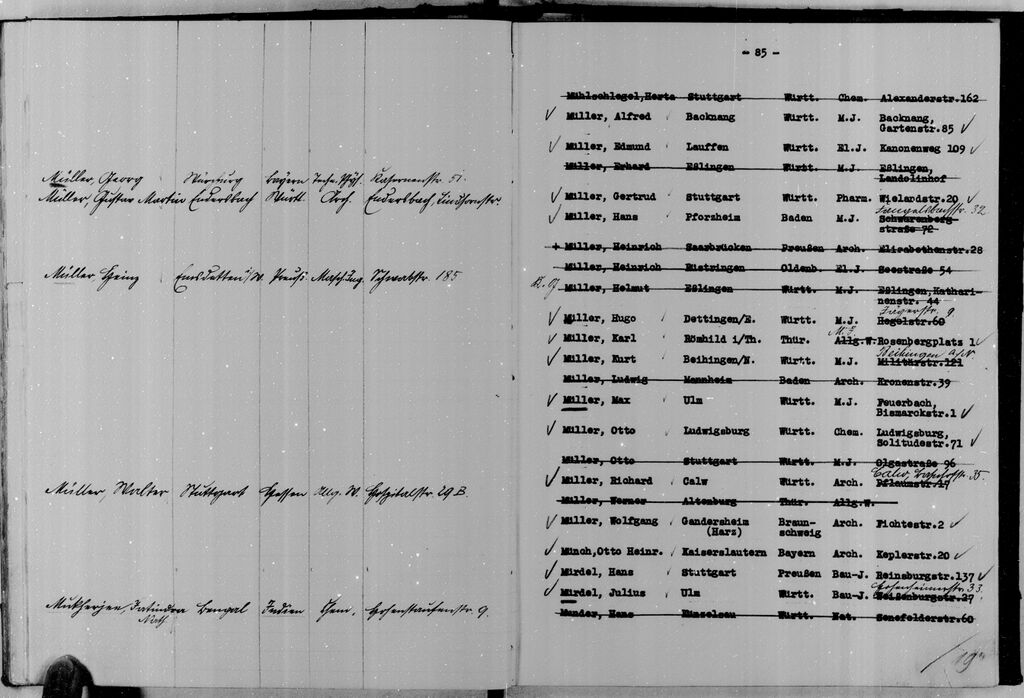 Müller, Georg Würzburg Bayern Techn. Phys. Kasernenstr. 51.
Müller, Gustav Martin Endersbach Württ. Arch. Endersbach,
Müller, Heinz Emsdetten/W. Preuß. Masch.Ing. Schwabstr. 185
Müller, Walter Stuttgart Hessen Allg. W. Hospitalstr. 29 B.
Mukherjee, Jatindra Bengal Indien Chem. Hohenstaufenstr. 9.
Nath
- 85 -
Mühlschlegel, Herta Stuttgart Württ. Chem. Alexanderstr.162
Müller, Alfred Backnang Württ. M.J. Backnang,
Gartenstr.85
Müller, Edmund Lauffen Württ. El.J. Kanonenweg 109
Müller, Erhard Eßlingen Württ. M.J. Eßlingen,
Landolinhof
Müller, Gertrud Stuttgart Württ. Pharm. Wielandstr.20
32
Müller, Hans Pforzheim Baden M.J. Schwarenberg-
straße 72
+ Müller, Heinrich Saarbrücken Preußen Arch. Elisabethenstr.28
Müller, Heinrich Rüstringen Oldenb. El.J. Seestraße 54
Müller, Helmut Eßlingen Württ. M.J. Eßlingen, Kathari-
nenstr. 44
Jägerstr. 9
Müller, Hugo Dettingen/E. Württ. M.J. Hegelstr.60
M.J.
Müller, Karl Römhild i/Th. Thür. Allg.W. Rosenbergplatz 1
Beihingen a/N
Müller, Kurt Beihingen/N. Württ. M.J. Militärstr.121
Müller, Ludwig Mannheim Baden Arch. Kronenstr.39
Müller, Max Ulm Württ. M.J. Feuerbach,
Bismarckstr.1
Müller, Otto Ludwigsburg Württ. Chem. Ludwigsburg,
Solitudestr.71
Müller, Otto Stuttgart Württ. M.J. Olgastraße 96
Calw, Bahnhofstr.
Müller, Richard Calw Württ. Arch. Pflaumstr.17
Müller, Werner Altenburg Thür. Allg.W.
Müller, Wolfgang Gandersheim Braun- Arch. Fichtestr.2
(Harz) schweig
Münch, Otto Heinr. Kaiserslautern Bayern Arch. Keplerstr.20
Mürdel, Hans Stuttgart Preußen Bau-J. Reinsburgstr.137
Hohenheimerstr. 33
Mürdel, Julius Ulm Württ. Bau-J. Weißenburgstr.27
Munder, Hans Künzelsau Württ. Nat. Senefelderstr.60